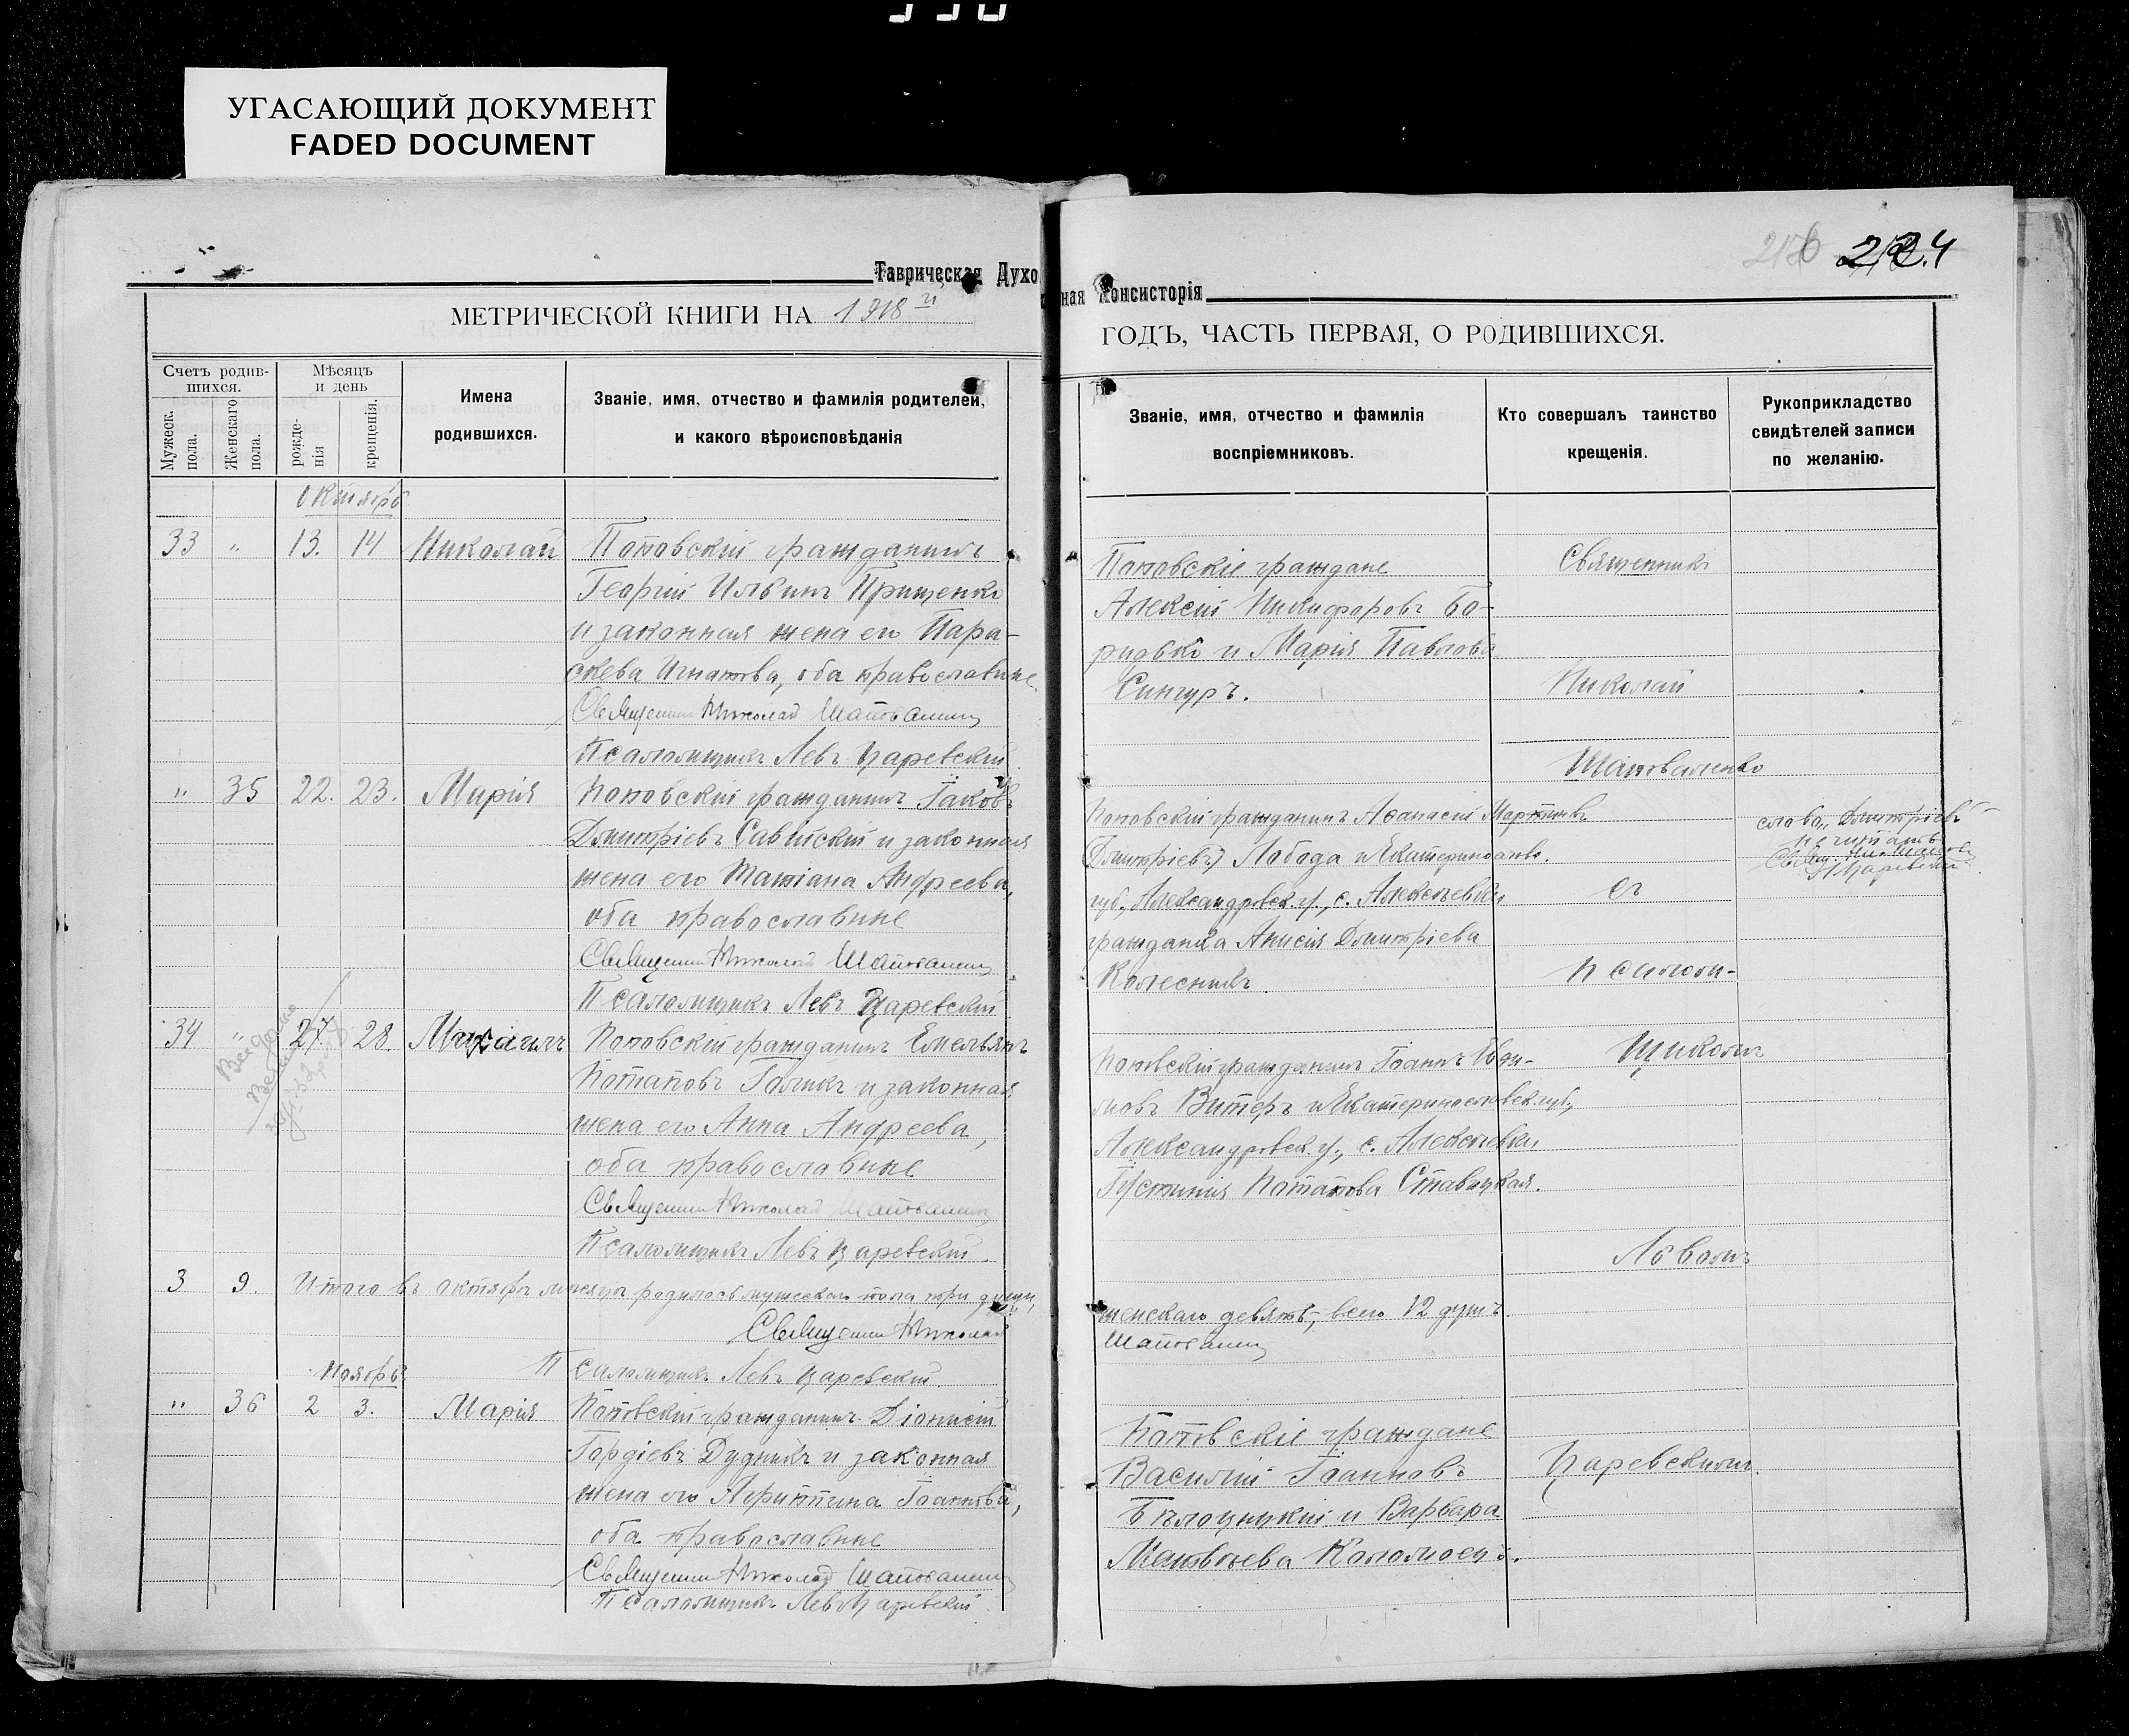 УГАСАЮЩИЙ ДОКУМЕНТ
FADED DOCUMENT
Таврическая Духо
МЕТРИЧЕСКОЙ КНИГИ НА 1918 й
Счетъ родив-
шихся.
Мѣсяцъ
и день
Мужеск.
пола.
Женскаго
пола.
рожде-
нія
крещенія.
Имена
родившихся.
Званіе, имя, отчество и фамилія родителей,
и какого вѣроисповѣданія
Октябрь
33 " 13. 14 Николай Поповскій гражданинъ
Георгій Ильинъ Прищенко
и законная жена его Пара-
скева Игнатова, оба православные
Священник Николай Шаповаленко
Псаломщикъ Левъ Царевскій
" 35 22. 23. Марія Поповскій гражданинъ Іаковъ
Дмитріевъ Савитскій и законная
жена его Татіана Андреева,
оба православные
Священник Николай Шаповаленко
Псаломщикъ Левъ Царевскій
34 " 27. 28. Михаилъ Поповскій гражданинъ Емельянъ
Потаповъ Голикъ и законная
жена его Анна Андреева,
оба православные
Священник Николай Шаповаленко
Псаломщикъ Левъ Царевскій.
3 9. Итого въ октябрѣ мѣсяцѣ родилось мужескаго пола три души,
Священник Николай
Ноябрь
Псаломщикъ Левъ Царевскій.
" 36 2 3. Марія Поповскій гражданинъ Діонисій
Гордіевъ Дудникъ и законная
жена его Агриппина Іоаннова,
оба православные
Священник Николай Шаповаленко
Псаломщикъ Левъ Царевскій.
224
ная Консисторія
ГОДЪ, ЧАСТЬ ПЕРВАЯ, О РОДИВШИХСЯ.
Званіе, имя, отчество и фамилія
воспріемниковъ.
Кто совершалъ таинство
крещенія.
Рукоприкладство
свидѣтелей записи
по желанію.
Поповскіе граждане
Алексій Никифоровъ Бо-
ридько и Марія Павлова
Сингуръ.
Священникъ
Николай
Шаповаленко
Поповскій гражданинъ Аѳанасій Мартинъ
(Дмитріевъ) Лобода и Екатеринослав.
губ., Александровск. у., с. Алексѣевки
гражданка Анисія Дмитріева
Колесникъ.
слово "Дмитріевъ"
не читать
съ
псалом-
Поповскій гражданинъ Іоаннъ
Витеръ и Екатеринославск. губ.,
Александровск. у., с. Алексѣевки
Іустинія Потапова Ставицкая.
щикомъ
Львомъ
женскаго девять, всего 12 душъ.
Шаповаленко
Поповскіе граждане
Василій Іоанновъ
Бѣлоцуцкій и Варвара
Матвѣева Коломоецъ.
Царевскимъ.